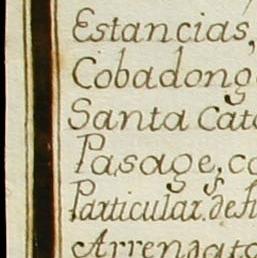 Estancias,
Cobadong
Santa Cat
Pasage, co
Particular. de
Arrendato